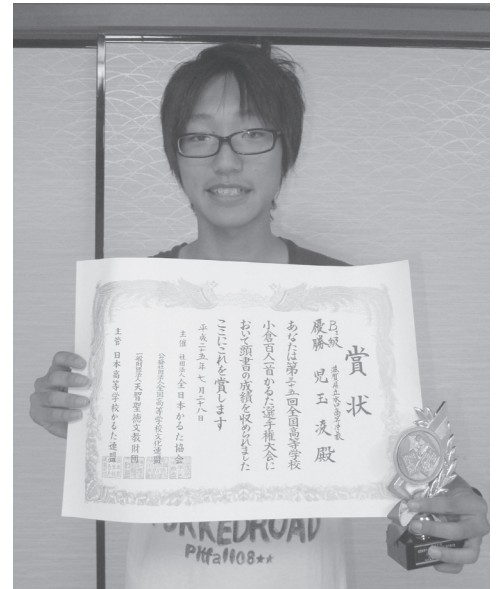 賞状
B級
優勝 児玉凌殿
あなたは第三十五回全国高等学校
小倉百人一首かるた選手権大会に
おいて頭書の成績を収められました
ここにこれを賞します
平成二十五年七月二十八日
主催 社団法人全日本かるた協会
公益社団法人全国高等学校文化連盟
一般財団法人天智聖徳文教財団
主管 日本高等学校かるた連盟
Pitfall08★★